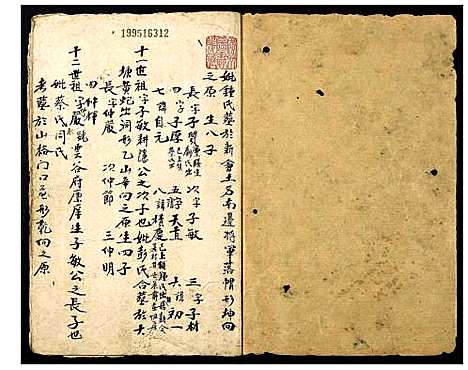 199516312
妣鍾氏墓於新會土名南邊將軍落帽形坤向
之原生八子
長字子賢 次字子敏 三字子材
四字子厚 五諱天直 六諱初一
七諱自元 八諱積慶
十一世祖字子敏耕隱公之次子也妣彭氏合墓於大
塘黃蛇出洞形乙山辛向之原生四子
長字仲嚴 次仲節 三仲明
四仲輝
十二世祖字嚴號雲谷府原庠生子敏公之長子也
妣蔡氏同氏
老墓於山格門口 形乾向之原